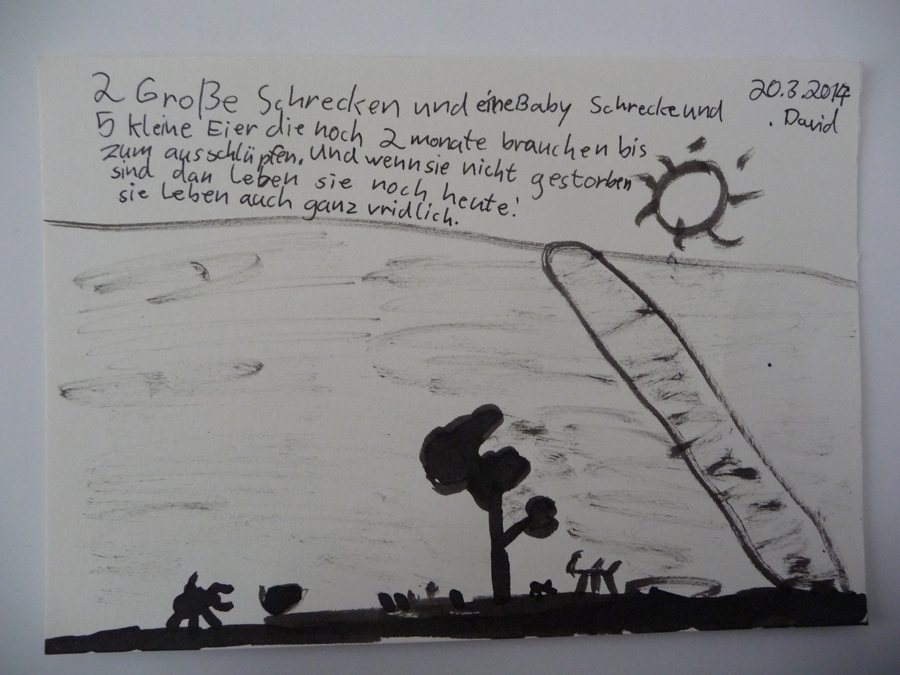 2 Große Schrecken und eine Baby Schrecke und
5 kleine Eier die noch 2 monate brauchen bis
zum ausschlüpfen. Und wenn sie nicht gestorben
sind dan leben sie noch heute!
sie leben auch ganz vridlich.
20.3.2014
. David